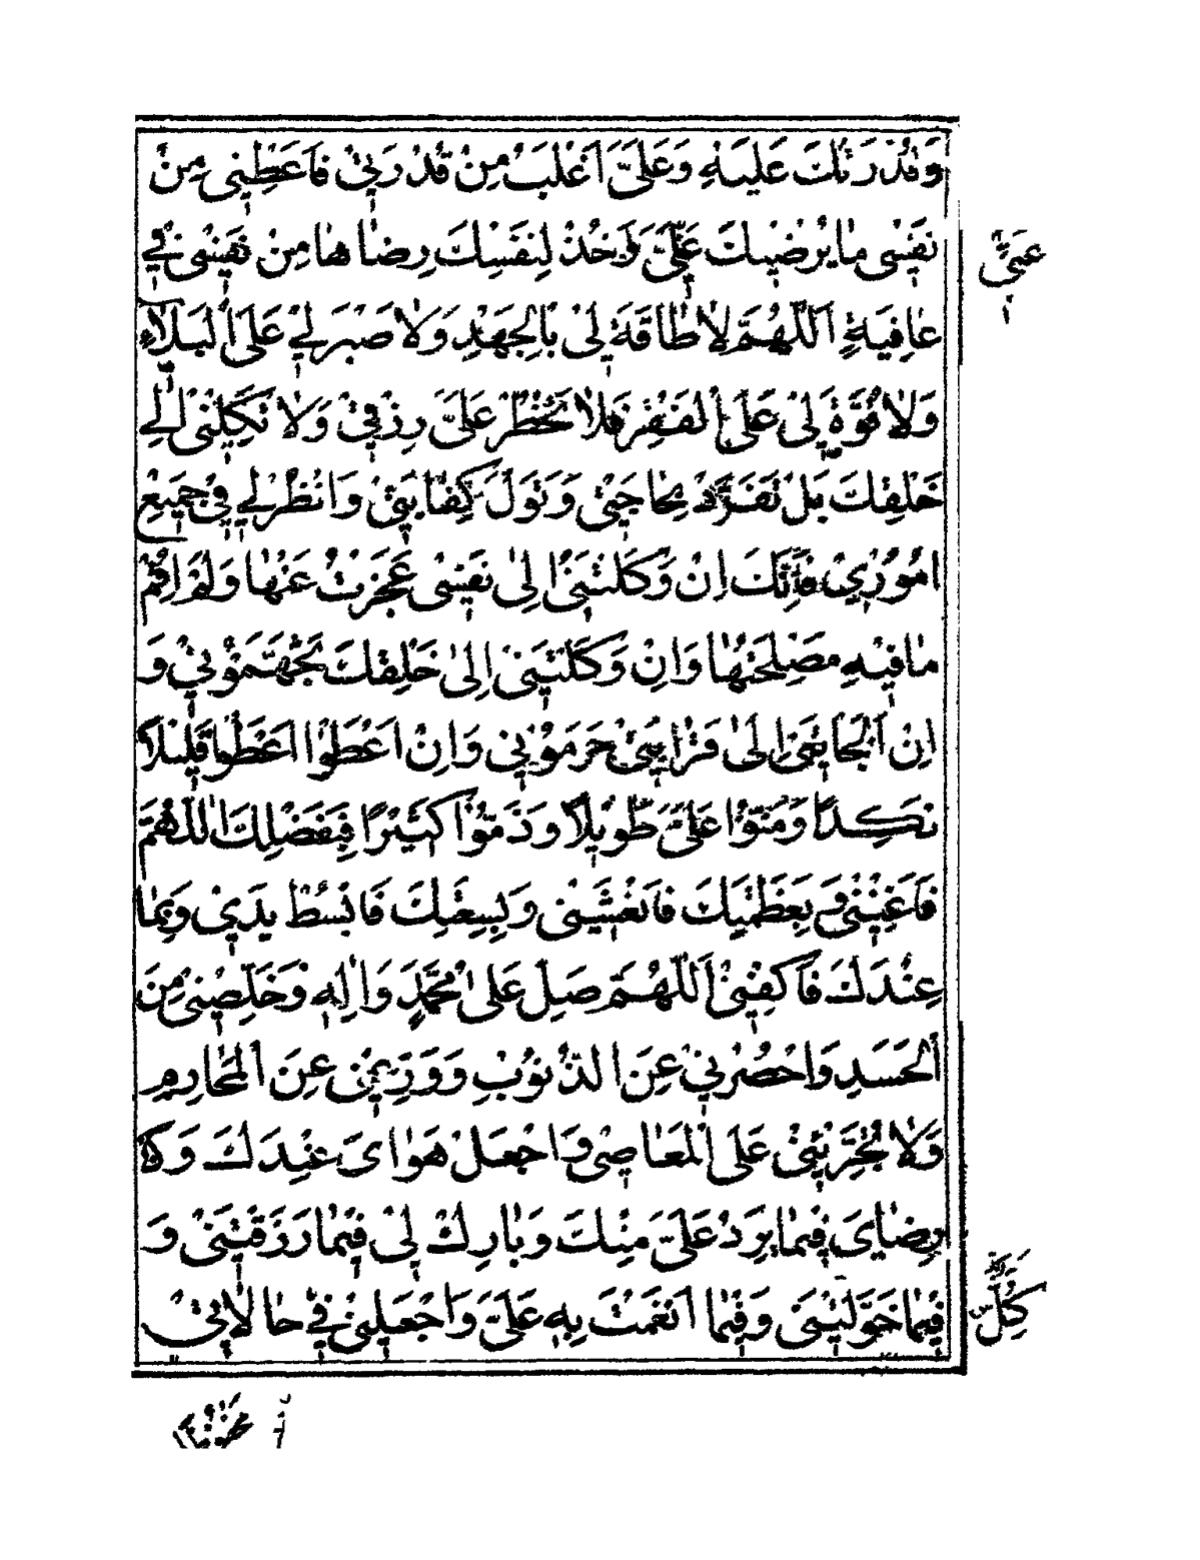 وَقُدْرَتُكَ عَلَيْهِ وَعَلَيَّ اَغْلَبُ مِنْ قُدْرَتِيْ فَاَعْطِنِي مِنْ
نَفْسِي مٰا يُرْضِيكَ عَنِّيْ وَخُذْ لِنَفْسِكَ رِضٰاهٰا مِنْ نَفْسِي فِي
عٰافِيَةٍ اَللّٰهُمَّ لاٰ طٰاقَةَ لِيْ بِالْجَهْدِ وَلاٰ صَبْرَ لِيْ عَلَى الْبَلاٰءِ
وَلاٰ قُوَّةَ لِيْ عَلَى الْفَقْرِ فَلاٰ تَحْظُرْ عَلَيَّ رِزْقِيْ وَلاٰ تَكِلْنِيْ اِلٰى
خَلْقِكَ بَلْ تَفَرَّدْ بِحٰاجَتِيْ وَتَوَلَّ كِفٰايَتِيْ وَانْظُرْ لِي فِيْ جَمِيعِ
اُمُوْرِيْ فَاِنَّكَ اِنْ وَكَلْتَنِيْ اِلىٰ نَفْسِي عَجَزْتُ عَنْهٰا وَلَمْ اُقِمْ
مٰا فِيْهِ مَصْلَحَتُهٰا وَاِنْ وَكَلْتَنِي اِلىٰ خَلْقِكَ تَجَهَّمُوْنِيْ وَ
اِنْ اَلْجَاْتَنِيْ اِلىٰ قَرٰابَتِيْ حَرَمُوْنِي وَاِنْ اَعْطَوْا اَعْطَوْا قَلِيْلاً
نَكِداً وَمَنُّوْا عَلَيَّ طَوِيْلاً وَذَمُّوْا كَثِيْرًا فَبِفَضْلِكَ اللّٰهُمَّ
فَاَغْنِنِيْ وَبِعَظَمَتِكَ فَانْعَشْنِي وَبِسِعَتِكَ فَابْسُطْ يَدِيْ وَبِمٰا
عِنْدَكَ فَاكْفِنِيْ اَللّٰهُمَّ صَلِّ عَلىٰ مُحَمَّدٍ وَاٰلِهِ وَخَلِّصْنِي مِنَ
الْحَسَدِ وَاحْصُرْنِيْ عَنِ الذُّنُوْبِ وَوَرِّعْنِي عَنِ الْمَحٰارِمِ
وَلاٰ تُجَرِّئْنِيْ عَلَى الْمَعٰاصِي وَاجْعَلْ هَوٰاىَ عِنْدَكَ وَ
رِضٰايَ فِيْمٰا يَرِدُ عَلَيَّ مِنْكَ وَبٰارِكْ لِيْ فِيْمٰا رَزَقْتَنِيْ وَ
فِيْمٰا خَوَّلْتَنِيْ وَفِيْمٰا اَنْعَمْتَ بِهِ عَلَيَّ وَاجْعَلْنِيْ فِيْ حٰالاٰتِيْ
كُلِّ